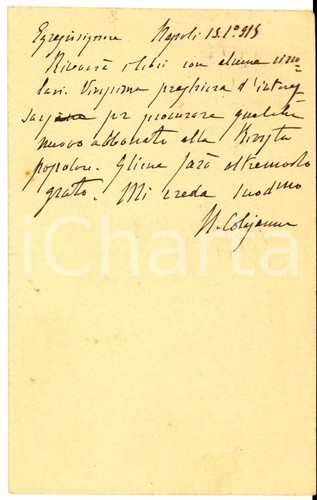 Egregissimo Napoli 13.1º 915
Riceverà i libri con alcune circo
lari. Vivissima preghiera d'interes
sarsene per procurare qualche
nuovo abbonato alla Rivista
popolare. Gliene sarò oltremodo
grato. Mi creda Suo dmo
N. Colajanni
iCharta